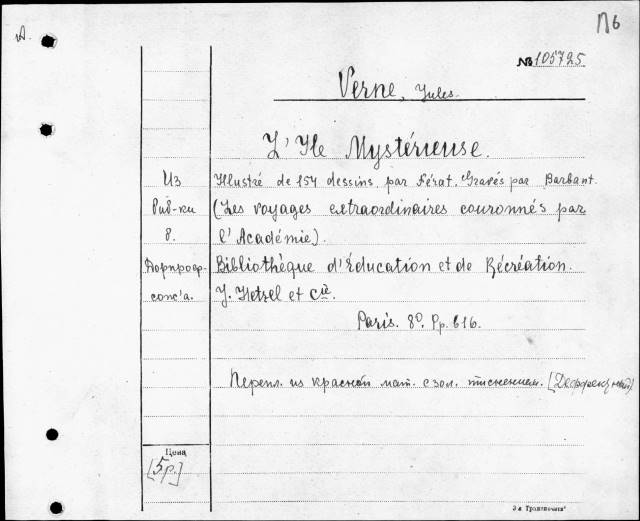 A.
П6
№ 105725
Verne, Jules.
L'Ile Mystérieuse.
Из Illustré de 154 dessins par Férat. Gravés par Barbant.
биб-ки (Les voyages extraordinaires couronnés par
б. l'Académie).
Bibliothèque d'Éducation et de Récréation.
J. Hetzel et Cie.
Paris. 8º. Pp. 616.
Перепл. из красной мат. с зол. тиснением.
Цена
[5р.]
3-я Транспечать